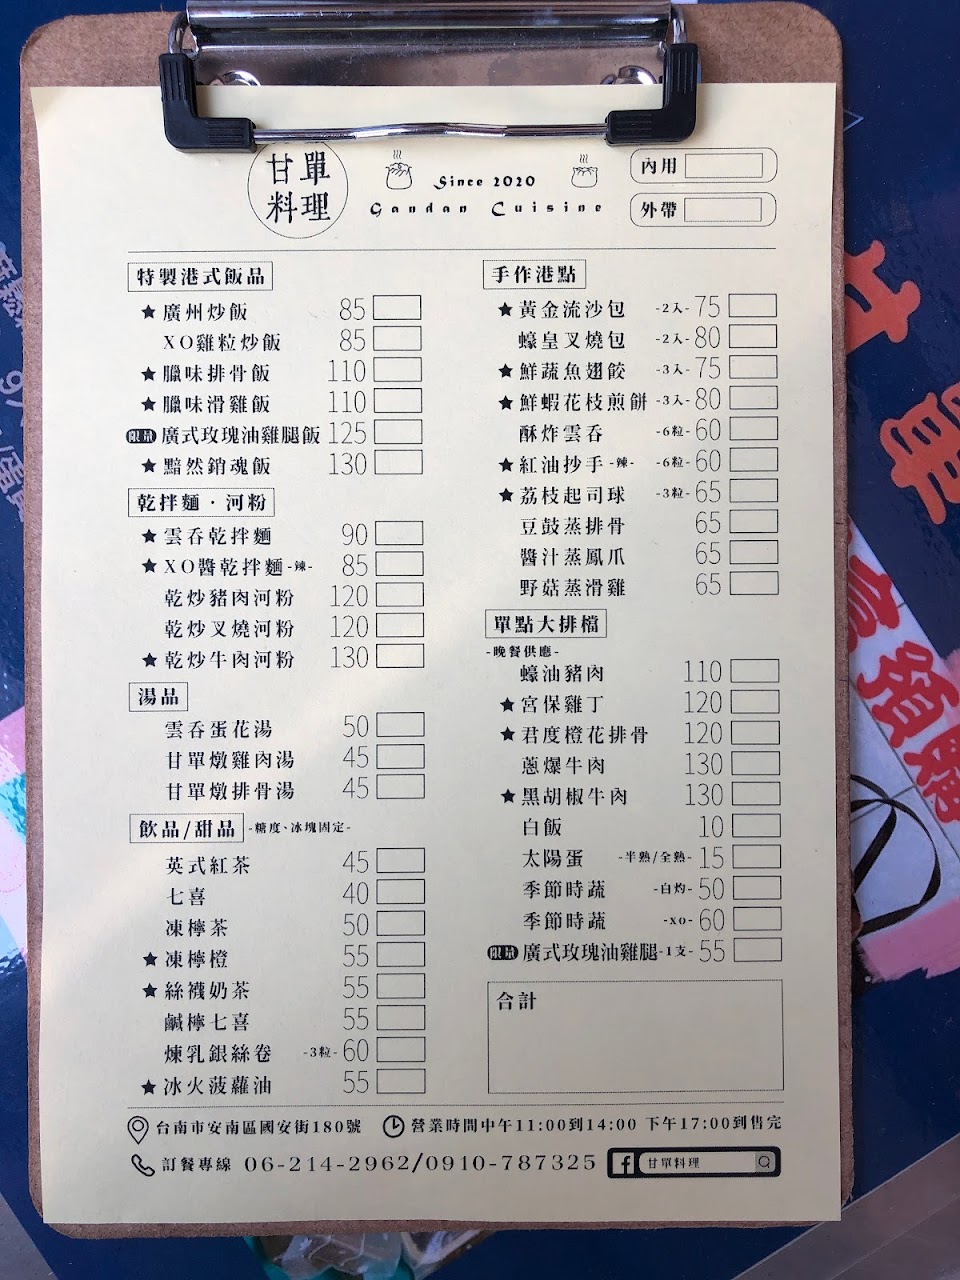 甘單
料理
Since 2020
Gandan Cuisine
內用
外帶
特製港式飯品
★廣州炒飯 85
XO雞粒炒飯 85
★臘味排骨飯 110
★臘味滑雞飯 110
限量 廣式玫瑰油雞腿飯 125
★黯然銷魂飯 130
乾拌麵·河粉
★雲吞乾拌麵 90
★XO醬乾拌麵-辣- 85
乾炒豬肉河粉 120
乾炒叉燒河粉 120
★乾炒牛肉河粉 130
湯品
雲吞蛋花湯 50
甘單燉雞肉湯 45
甘單燉排骨湯 45
飲品/甜品 -糖度、冰塊固定-
英式紅茶 45
七喜 40
凍檸茶 50
★凍檸橙 55
★絲襪奶茶 55
鹹檸七喜 55
煉乳銀絲卷 -3粒- 60
★冰火菠蘿油 55
手作港點
★黃金流沙包 -2入- 75
蠔皇叉燒包 -2入- 80
★鮮蔬魚翅餃 -3入- 75
★鮮蝦花枝煎餅 -3入- 80
酥炸雲吞 -6粒- 60
★紅油抄手-辣- -6粒- 60
★荔枝起司球 -3粒- 65
豆鼓蒸排骨 65
醬汁蒸鳳爪 65
野菇蒸滑雞 65
單點大排檔
-晚餐供應-
蠔油豬肉 110
★宮保雞丁 120
★君度橙花排骨 120
蔥爆牛肉 130
★黑胡椒牛肉 130
白飯 10
太陽蛋 -半熟/全熟- 15
季節時蔬 -白灼- 50
季節時蔬 -XO- 60
限量 廣式玫瑰油雞腿-1支- 55
合計
台南市安南區國安街180號 營業時間中午11:00到14:00 下午17:00到售完
訂餐專線 06-214-2962/0910-787325 甘單料理